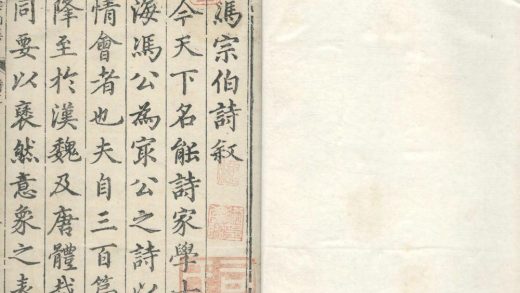 馮宗伯詩叙
今天下名能詩家學士
海馮公為㝡公之詩以
情會者也夫自三百篇
降至於漢魏及唐體裁
同要以襃然意象之表